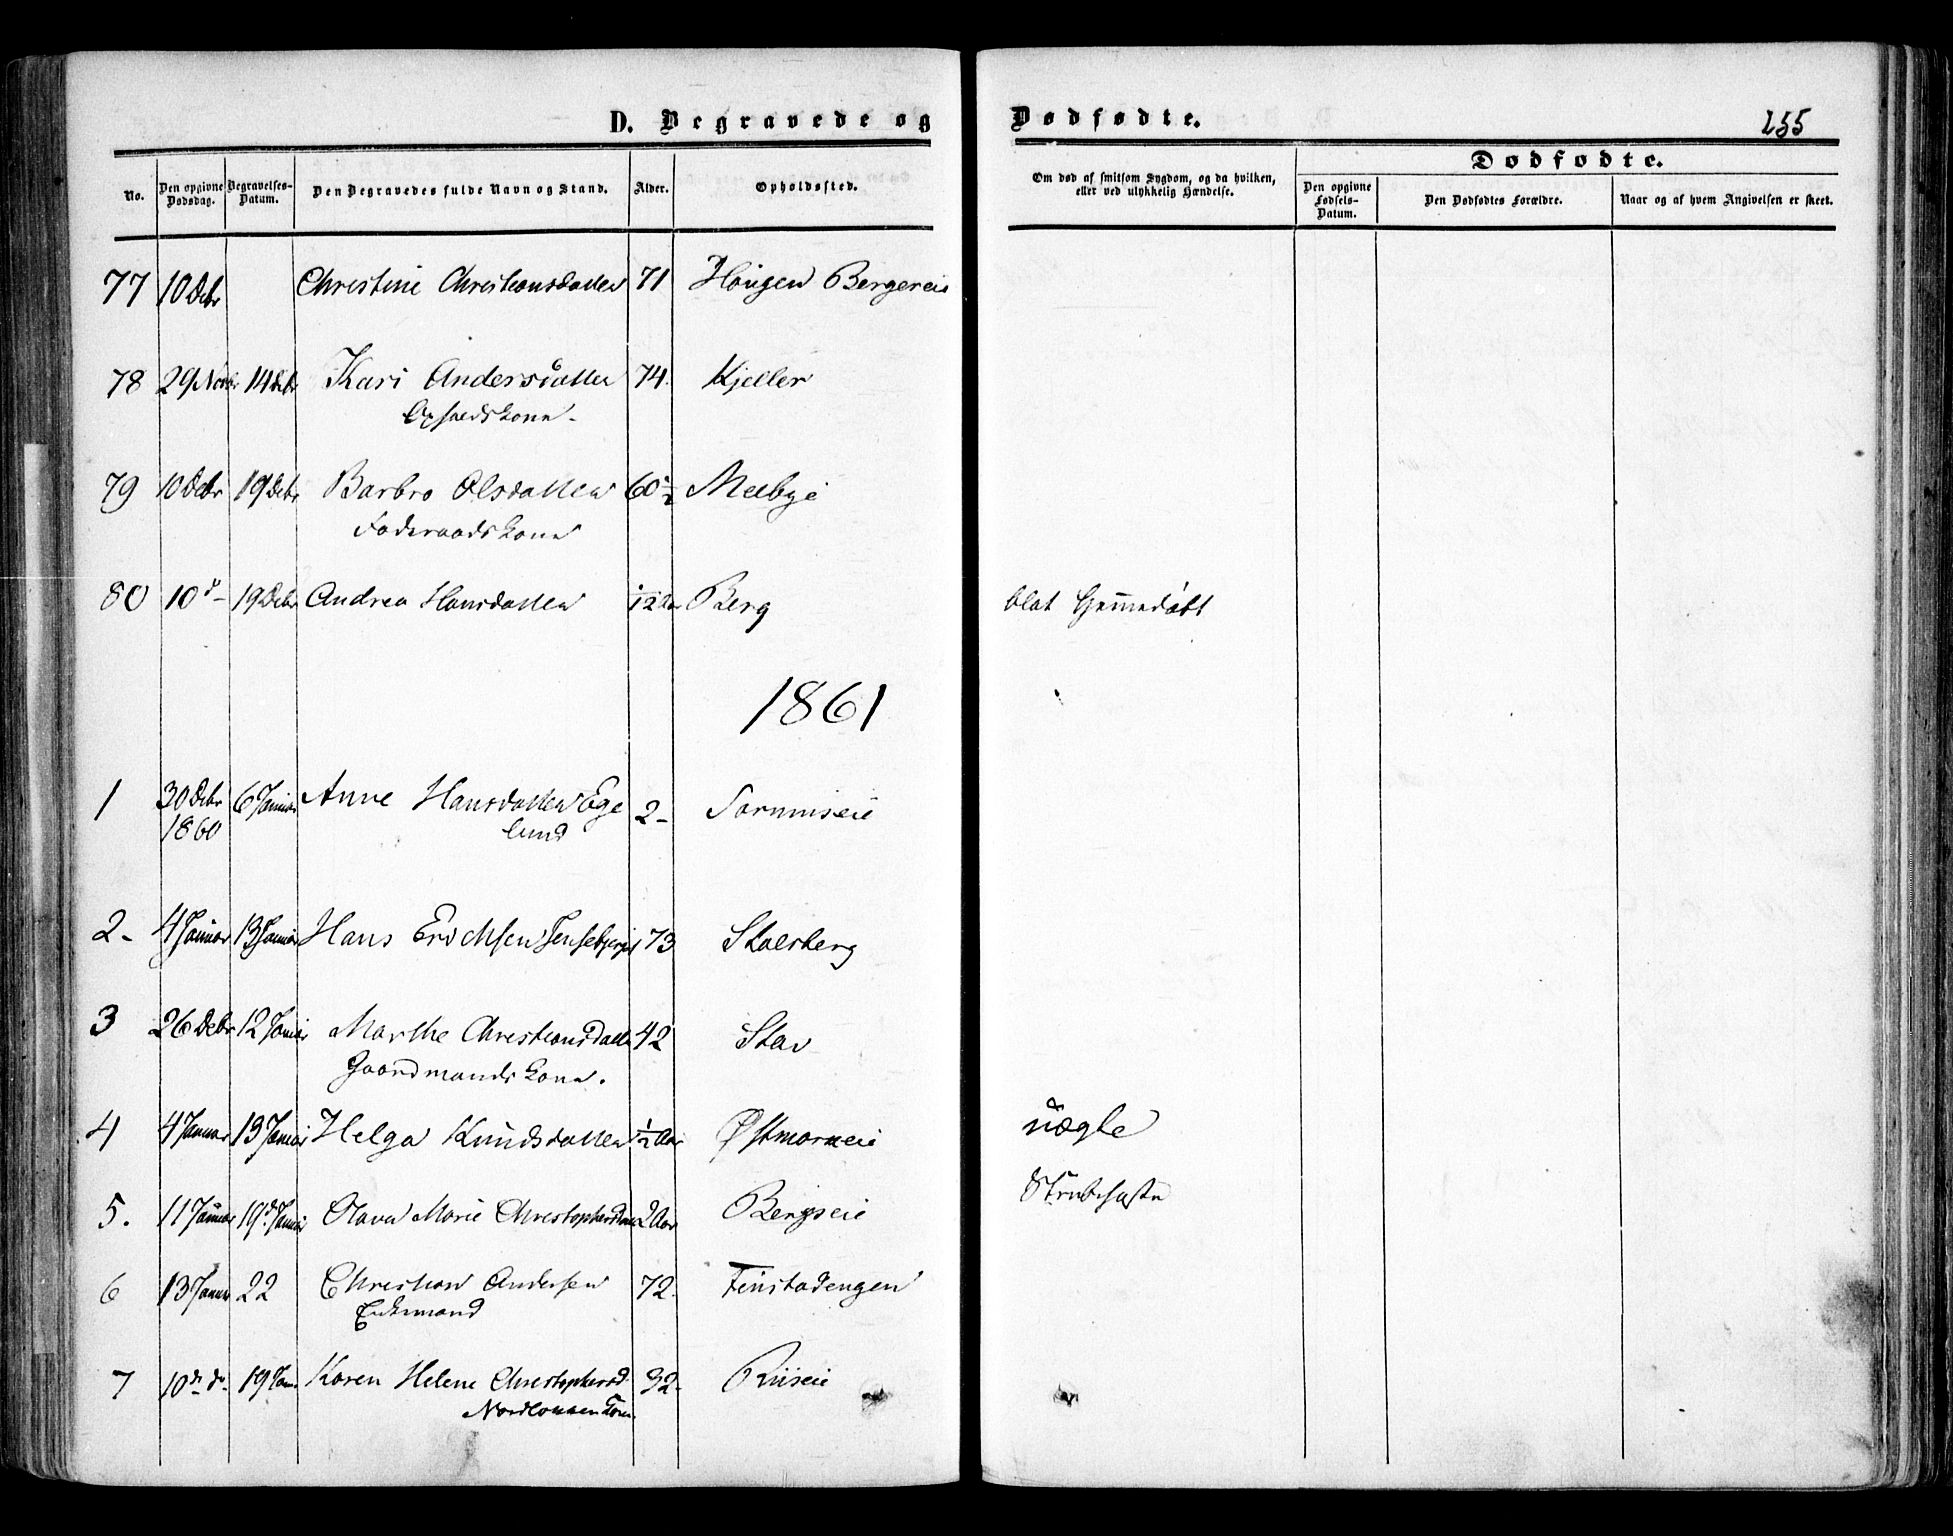 D. Begravede og Dødfødte. 255
No. Den opgivne Dødsdag. Begravelses-Datum. Den Begravedes fulde Navn og Stand. Alder. Opholdssted. Om død af smitsom Sygdom, og da hvilken, eller ved ulykkelig Hændelse. Dødfødte.
Den opgivne Fødsels-Datum. Den Dødfødtes Forældre. Naar og af hvem Angivelsen er skeet.
77 10 Debr Christine Christiansdatter 71 Haugen Bergereie
78 29 Novbr 14 Debr Kari Andersdatter 74. Kjeller
79 10 Debr 19 Debr Barbro Olsdatter 60½ Meebye
Føderaadskone
80 10 d- 19 Debr Andrea Hansdatter 1/12 Aar Berg blot hjemmedøbt
1861
1 30 Debr 1860 6 Januar Anne Hansdatter Ege 2-
lund
2- 4 Januar 13 Januar Hans Erichsen 73 Stalsberg
3 26 Debr 12 Januar Marthe Christiansdatter 42 Stav
Gaardmandskone.
4 4 Januar 13 Januar Helga Knudsdatter ½ Aar Østmorkeie nægle
5. 11 Januar 19d. Januar Olava Marie Christophersdatter 2 Aar Bergseie Strubehoste
6 13 Januar 22 Christian Andersen 72. Finstadengen
Enkemand
7 10 d- d- 19 Jan. Karen Helene Christophersd. 32- Riiseie